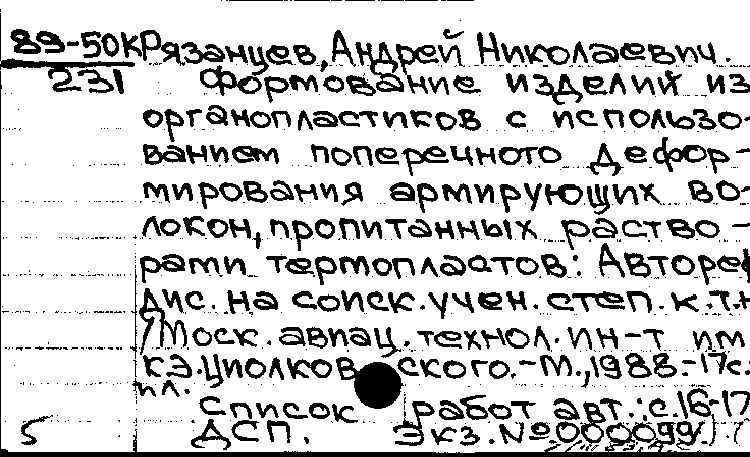 89-50к Рязанцев, Андрей Николаевич.
231 Формование изделий из
органопластиков с использо-
ванием поперечного дефор-
мирования армирующих во-
локон, пропитанных раство-
рами термопластов: Автореф
дис. на соиск. учен. степ. к.т.н
/Моск. авиац. технол. ин-т им
К.Э. Циолковского. - М., 1988. - 17с.
ил.
Список работ авт.: с.16-17
5 ДСП. Экз. № 000099